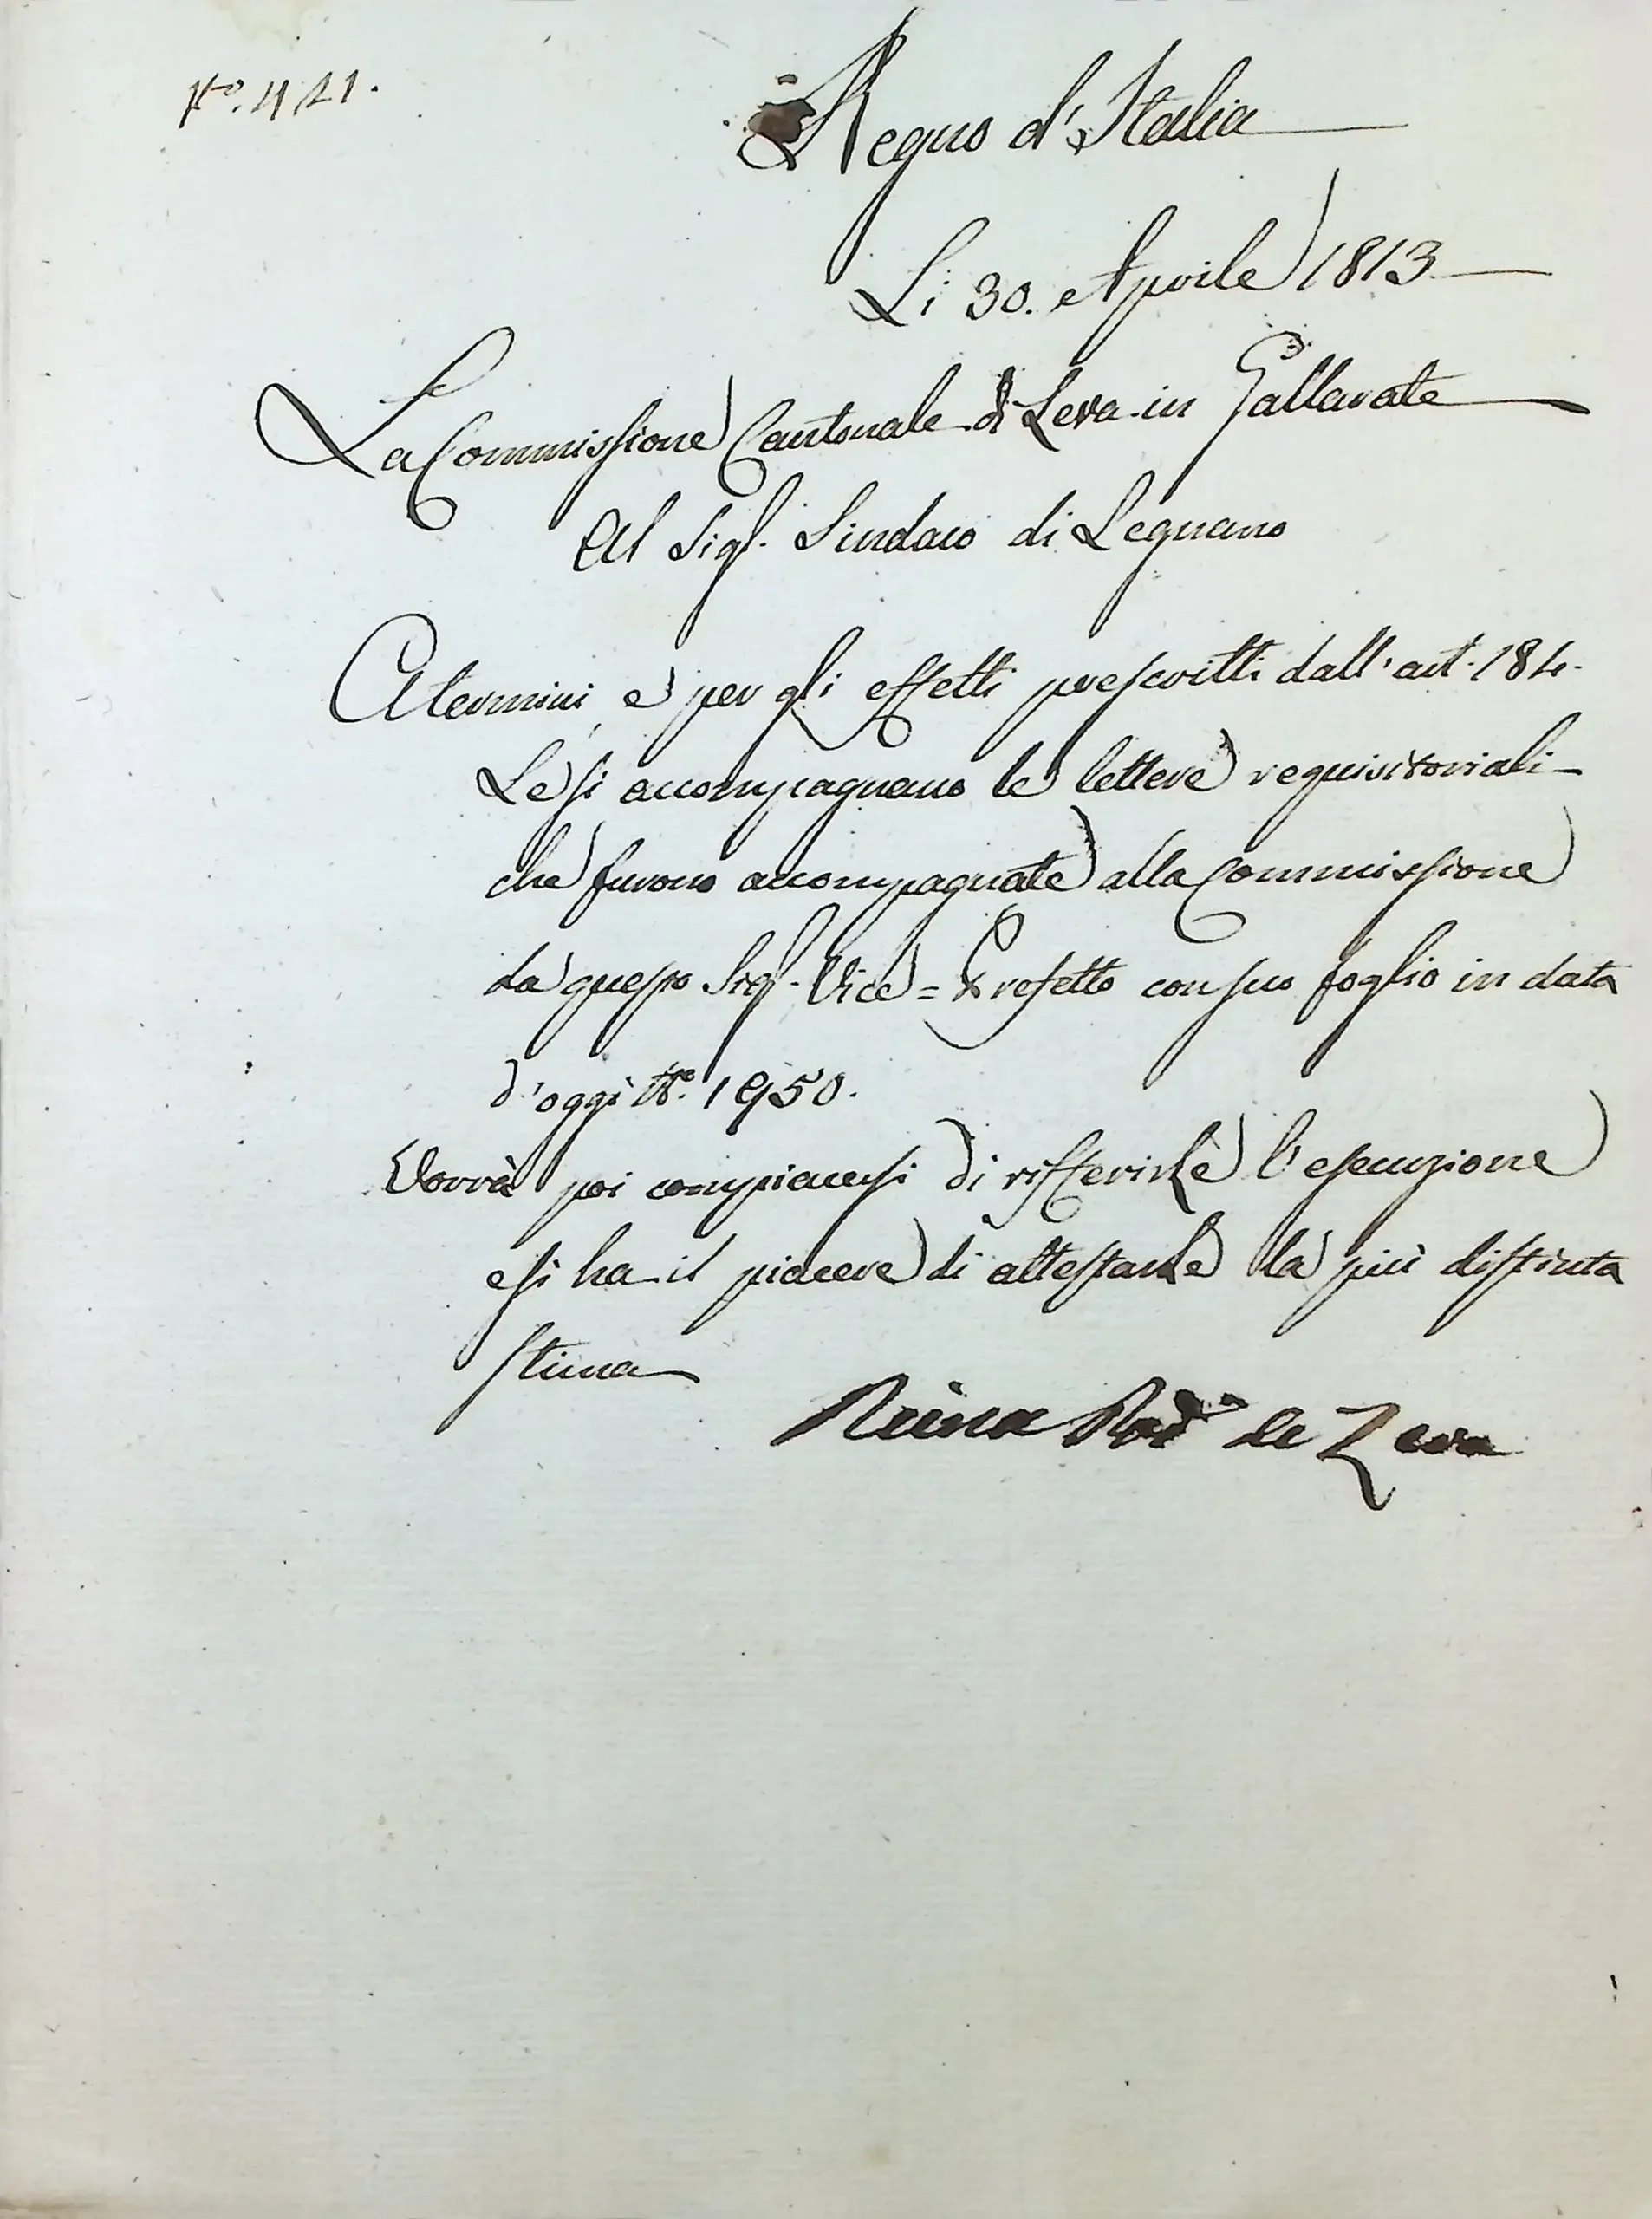 N.o 421.
Regno d'Italia
Li 30. Aprile 1813
La Commissione Cantonale di Leva in Gallarate
Al Sigr. Sindaco di Legnano
A termini, e per gli effetti prescritti dall'art. 184.
Le si accompagnano le lettere requisitoriali
che furono accompagnate alla Commissione
da questo Sigr. Vice = Prefetto con suo foglio in data
d'oggi N.o 1950.
Vorrà poi compiacersi di rifferirle l'esecuzione
e si ha il piacere di attestarle la più distinta
stima